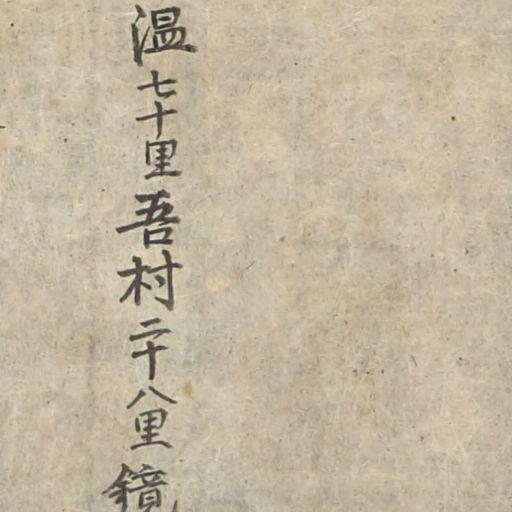 温七十里吾村二十八里鏡